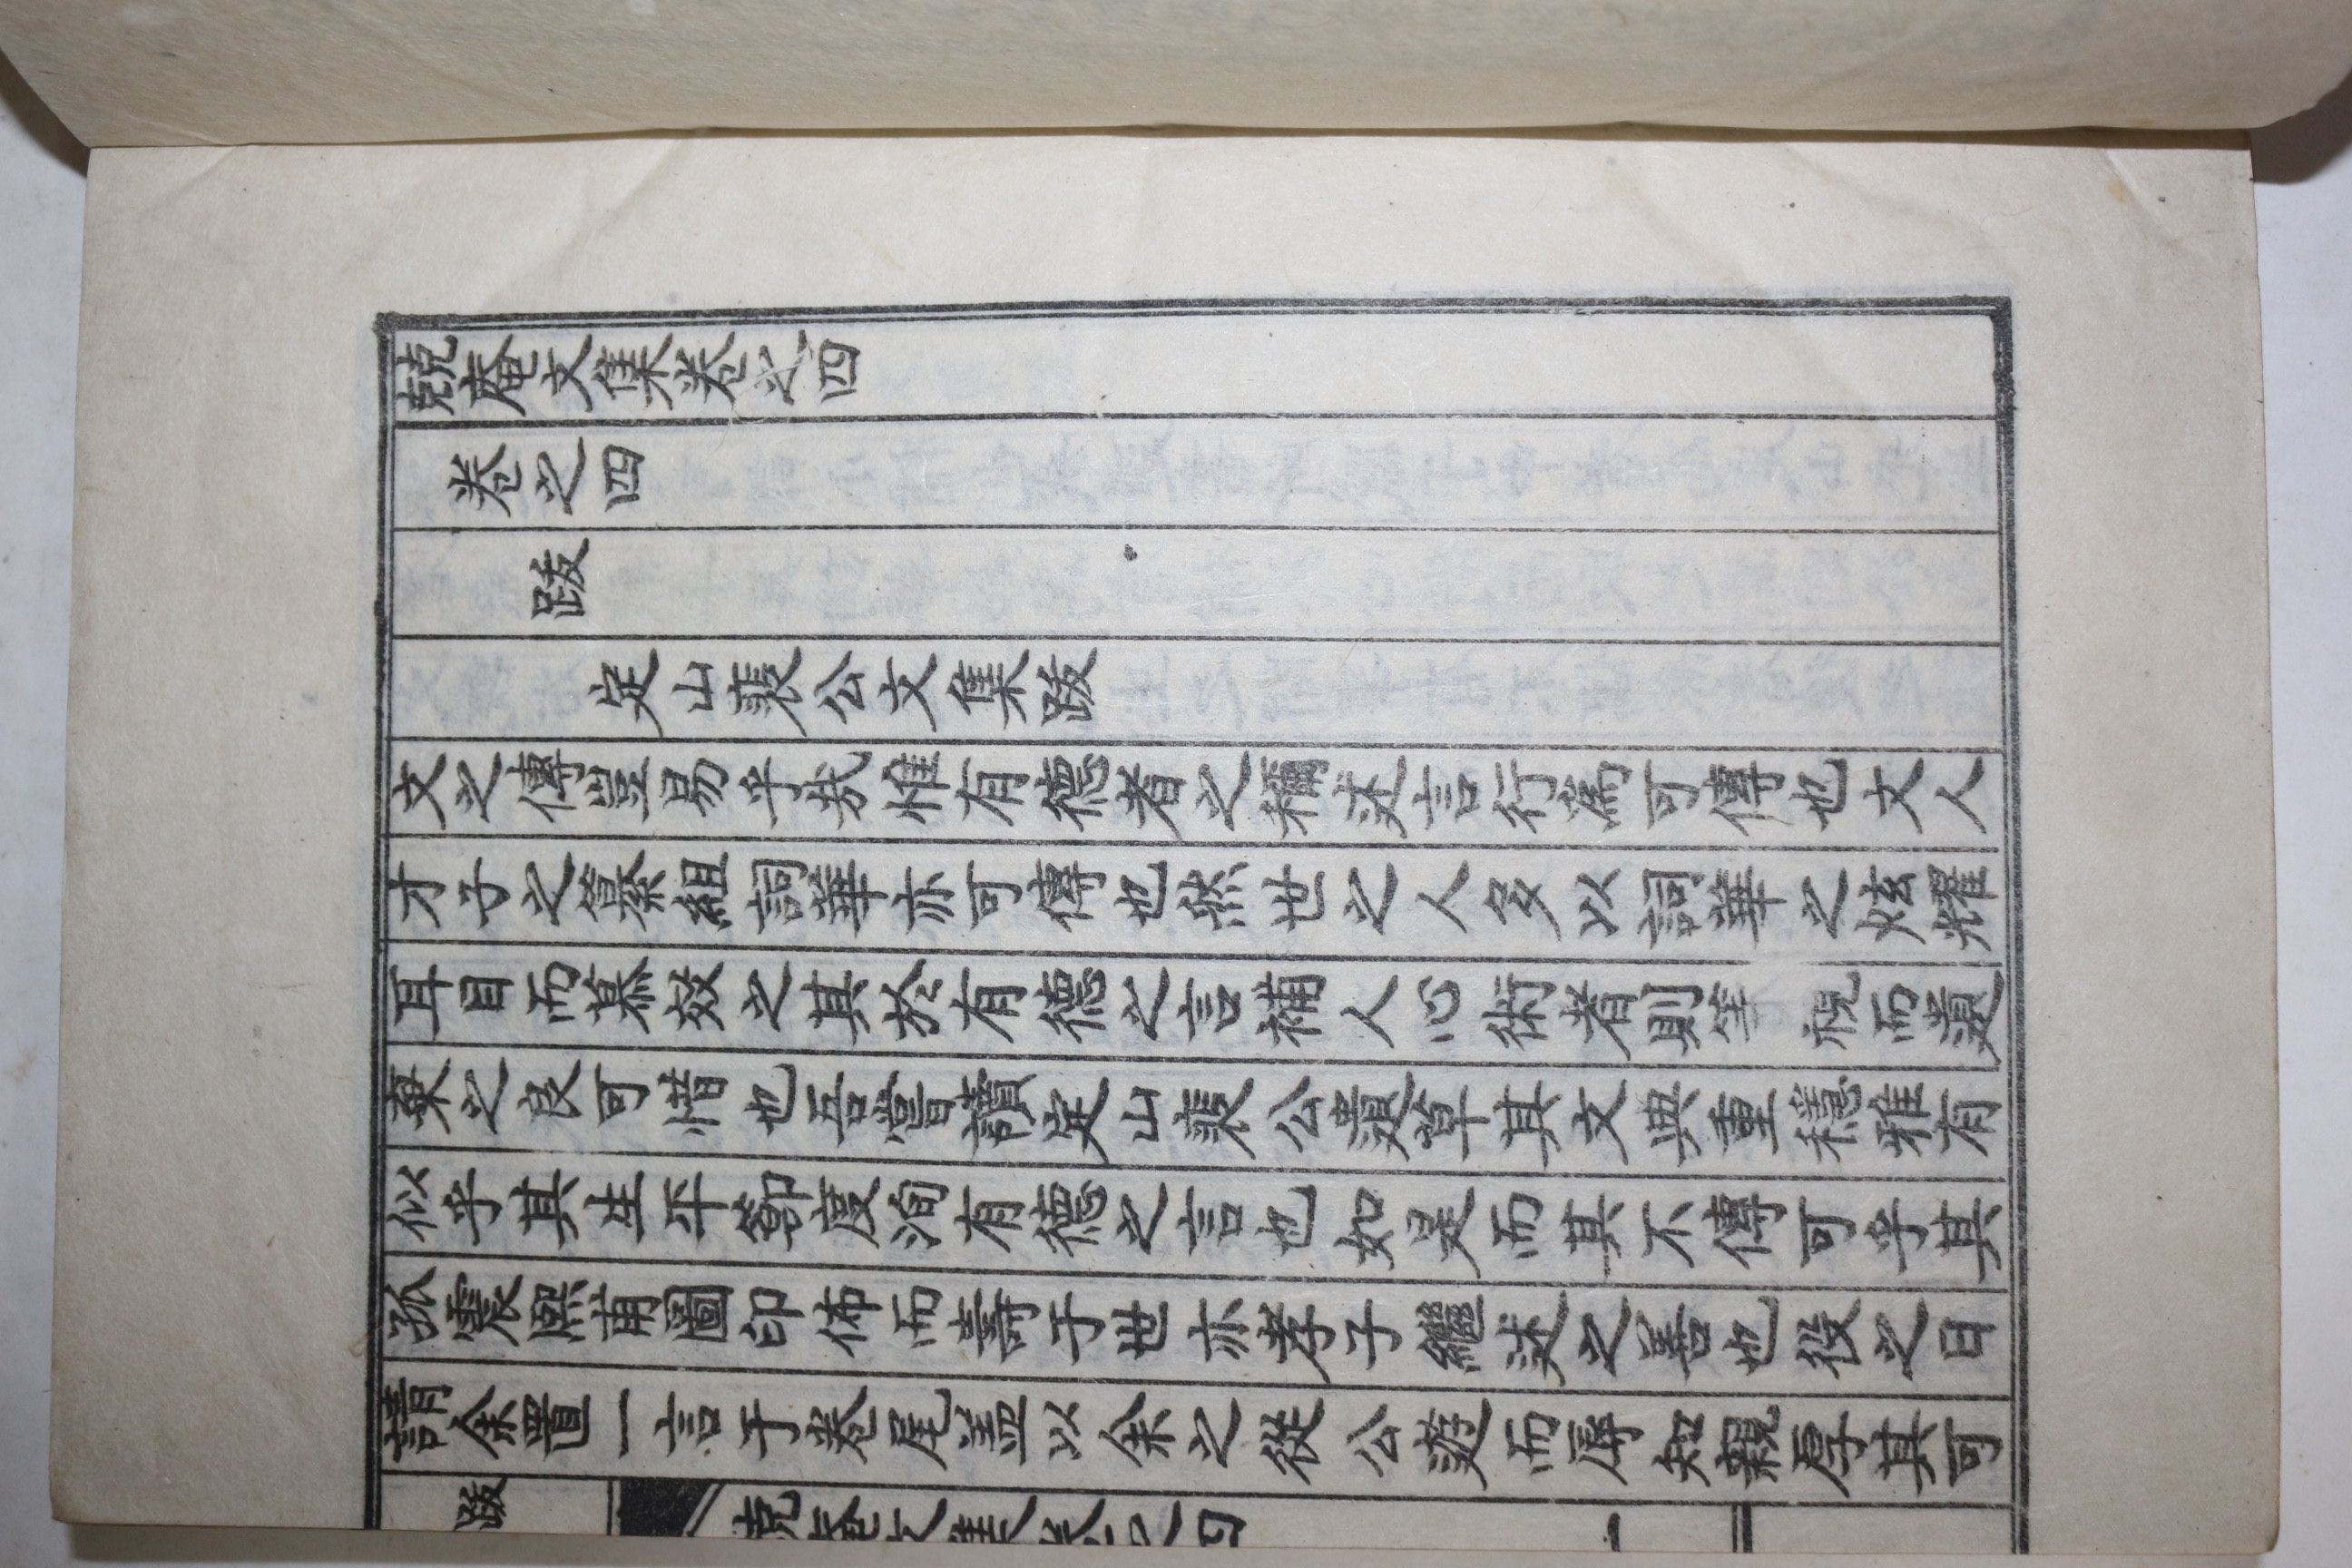 兢庵文集卷之四
卷之四
跋
定山裴公文集跋
文之傳豈易乎哉惟有德者之稱述言行爲可傳也文人
才子之纂組詞華亦可傳也然世之人多以詞華之炫耀
耳目而慕效之其於有德之言補人心術者則等視而遺
棄之良可惜也吾嘗讀定山裴公遺草其文典重穩雅有
似乎其生平節度洵有德之言也如是而其不傳可乎其
孤震熙甫圖印佈而壽于世亦孝子繼述之善也役之日
請余置一言于卷尾盖以余之從公遊而辱知親厚其可
跋
兢庵文集卷之四
一